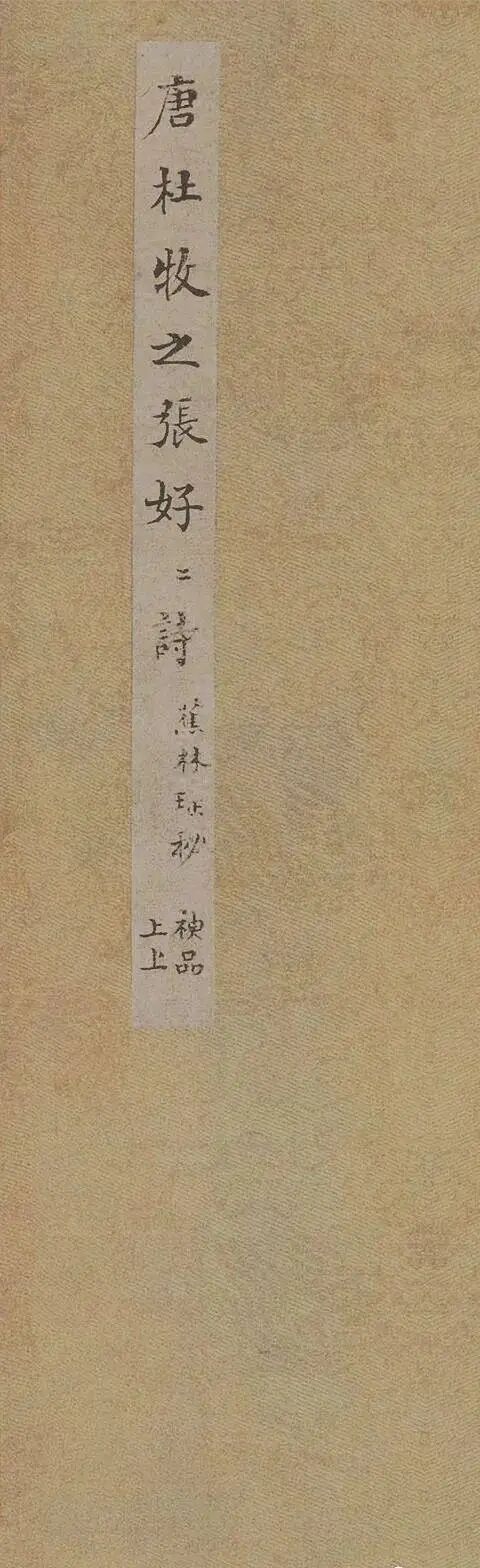 唐杜牧之張好二詩
蕉林珎秘
神品
上上